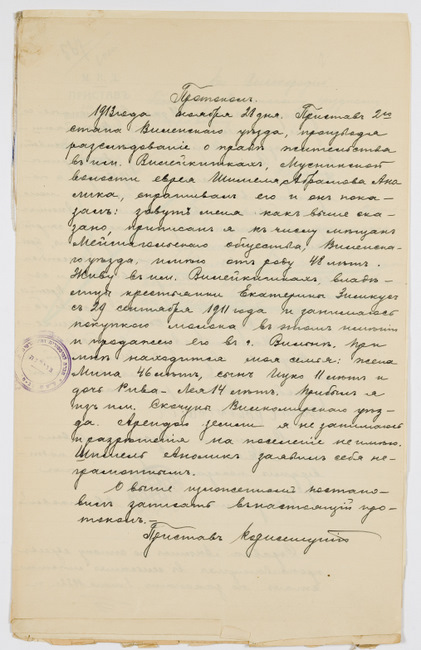 Протоколъ.
1913 года ноября 20 дня. Приставъ 2го
стана Виленскаго уѣзда, производя
разслѣдованіе о правѣ жительства
въ им. Вилейкишкахъ, Мусникской
волости еврея Шмеля Абрамова Ано-
лика, спрашивалъ его и онъ пока-
залъ: зовутъ меня какъ выше ска-
зано, приписанъ я къ числу мѣщанъ
Мейшагольскаго общества, Виленска-
го уѣзда, имѣю отъ роду 48 лѣтъ.
Живу въ им. Вилейкишкахъ, владѣ-
лицы крестьянки Екатерины
съ 29 сентября 1911 года и занимаюсь
покупкою молока въ этомъ имѣніи
и продажею его въ г. Вильнѣ. При
мнѣ находится моя семья: жена
Мина 46 лѣтъ, сынъ Ицко 11 лѣтъ и
дочь Рива-Лея 14 лѣтъ. Прибылъ я
изъ им. Вилкомирскаго уѣз-
да. Арендою земли я не занимаюсь
и разрѣшенія на поселеніе не имѣю.
Шмель Аноликъ заявилъ себя не-
грамотнымъ.
О выше изложенномъ постано-
вилъ записать въ настоящій про-
токолъ.—
Приставъ